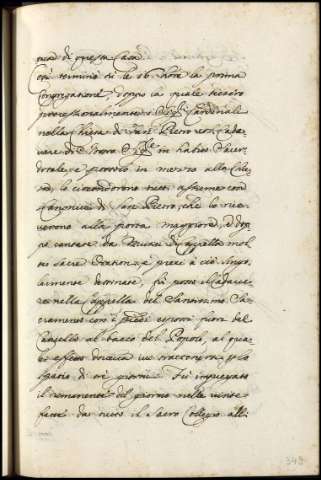 tura di questa Casa
Così terminò si le 16. hora la prima
Congregatione, doppo la quale uscirò
processionalmente i Sig.ri Cardinali
nella Chiesa di San Pietro verso il Cada
vere di in habito Sacer
dotale, e portato in mezzo alla Chie
sa, lo circondorono tutti assieme con
Canonici di San Pietro, che lo rice
verono alla porta maggiore, e dop
po cantate da Musici di Cappella mol
te sacre Orationi, e preci à ciò singo
larmente destinate, fù posto il Cadave
re nella Cappella del Santissimo Sa
cramento con i piedi esposti fuori del
Cancello al bacio del Popolo, al qua
le effetto
spatio di trè giorni. Fù impiegato
il rimanente del giorno nelle visite
fatte da tutto il Sacro Collegio all'
348